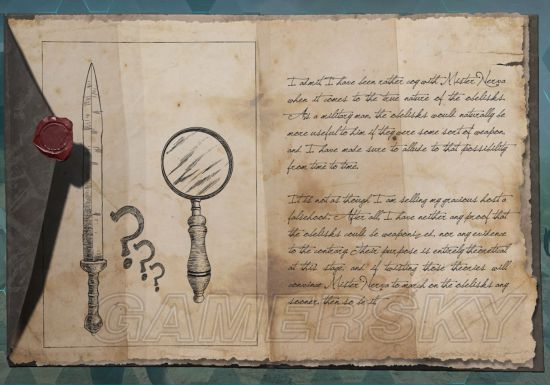 I admit, I have been rather coy with, Mister Nerva
when it comes to the true nature of the obelisks.
As a military man, the obelisks would naturally be
more useful to him if they were some sort of weapon,
and I have made sure to allude to that possibility
from time to time.
It is not as though I am selling my gracious host a
falsehood. After all, I have neither any proof that
the obelisks could be weaponized, nor any evidence
to the contrary. Their purpose is entirely theoretical
at this stage, and if twisting those theories will
convince Mister Nerva to march on the obelisks any
sooner, then so be it.
???
GAMERSKY